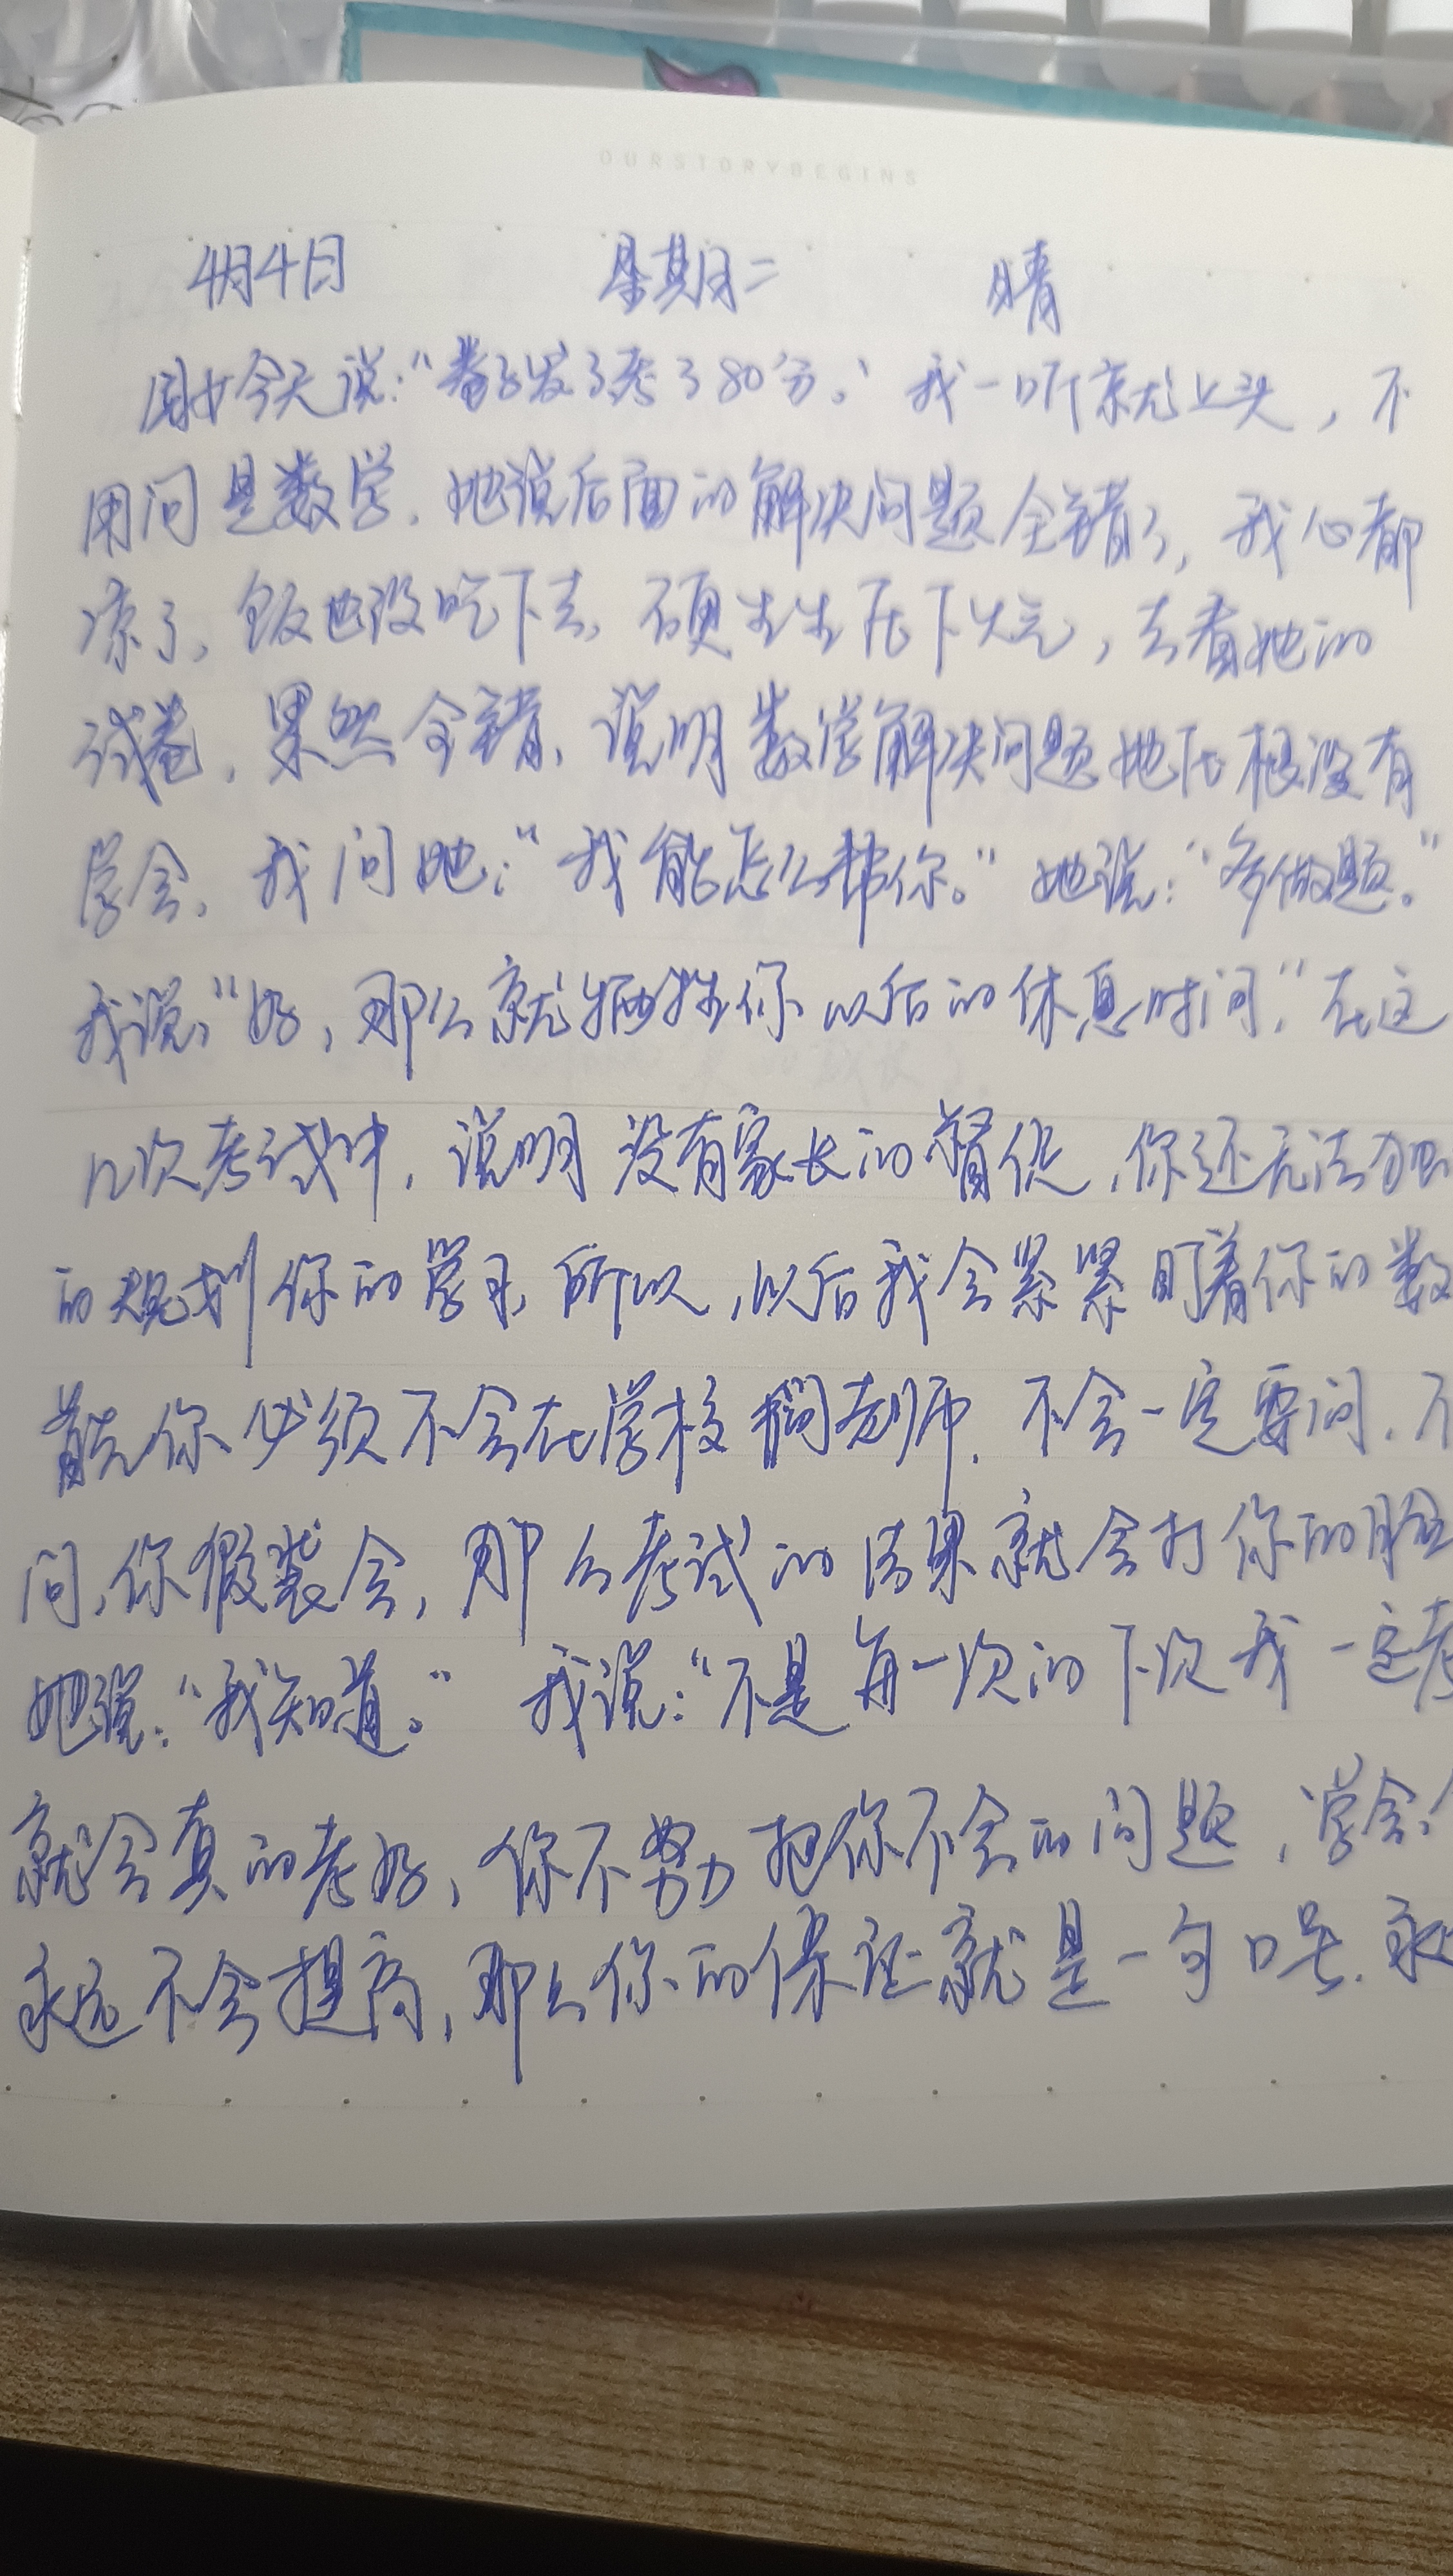 OURSTORYBEGINS
4月4日 星期二 晴
闺女今天说:“卷子发了考了80分。”我一听就上头,不
用问是数学.她说后面的解决问题全错了,我心都
凉了,饭也没吃下去,硬生生压下火气,去看她的
试卷,果然全错,说明数学解决问题她压根没有
学会,我问她:“我能怎么帮你。”她说:“多做题。”
我说:“好,那么就牺牲你以后的休息时间,”在这
几次考试中,说明没有家长的督促,你还无法独
的规划你的学习,所以,以后我会紧紧盯着你的数
首先你必须不会在学校问老师.不会一定要问.不
问,你假装会,那么考试的结果就会打你的脸
她说:“我知道。”我说:“不是每一次的下次我一定考
就会真的考好,你不努力把你不会的问题,学会,
永远不会提高,那么你的保证就是一句口号.永